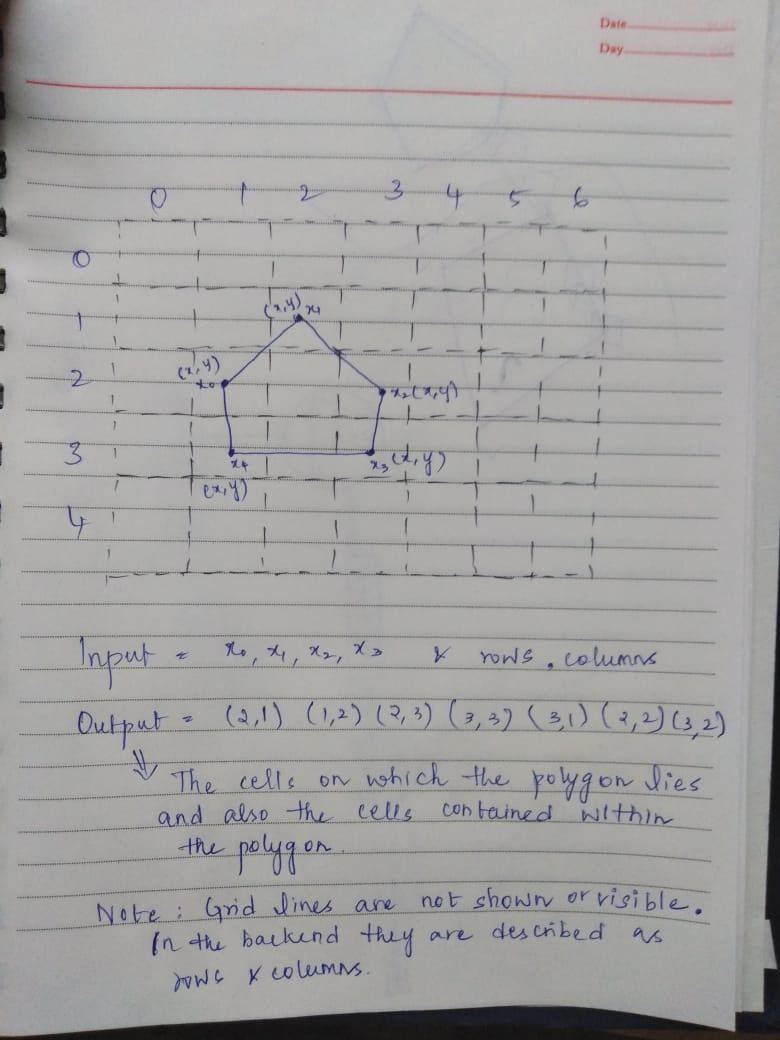 Date
Day
0 1 2 3 4 5 6
0
(x,y) x1
1
(x,y)
2
x0
x2(x,y)
3
x4
x3 (x,y)
(x,y)
4
Input = x0, x1, x2, x3 & rows, columns
Output = (2,1) (1,2) (2,3) (3,3) (3,1) (2,2) (3,2)
The cells on which the polygon lies
and also the cells contained within
the polygon.
Note: Grid lines are not shown or visible.
In the backend they are described as
rows & columns.